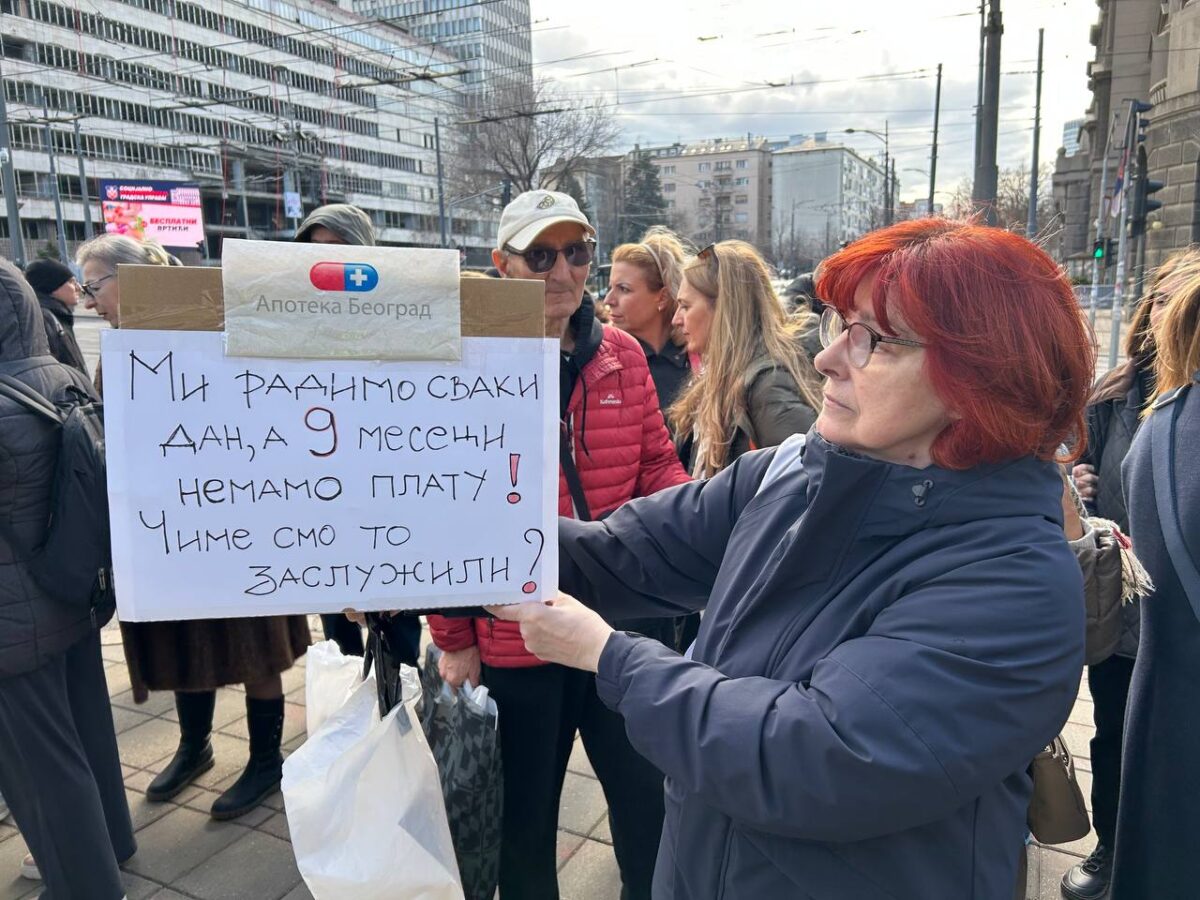 СОЦИЈАЛНО
БЕСПЛАТНИ
ВРТИЋИ
Апотека Београд
Ми радимо сваки
дан, а 9 месеци
немамо плату!
Чиме смо то
заслужили?